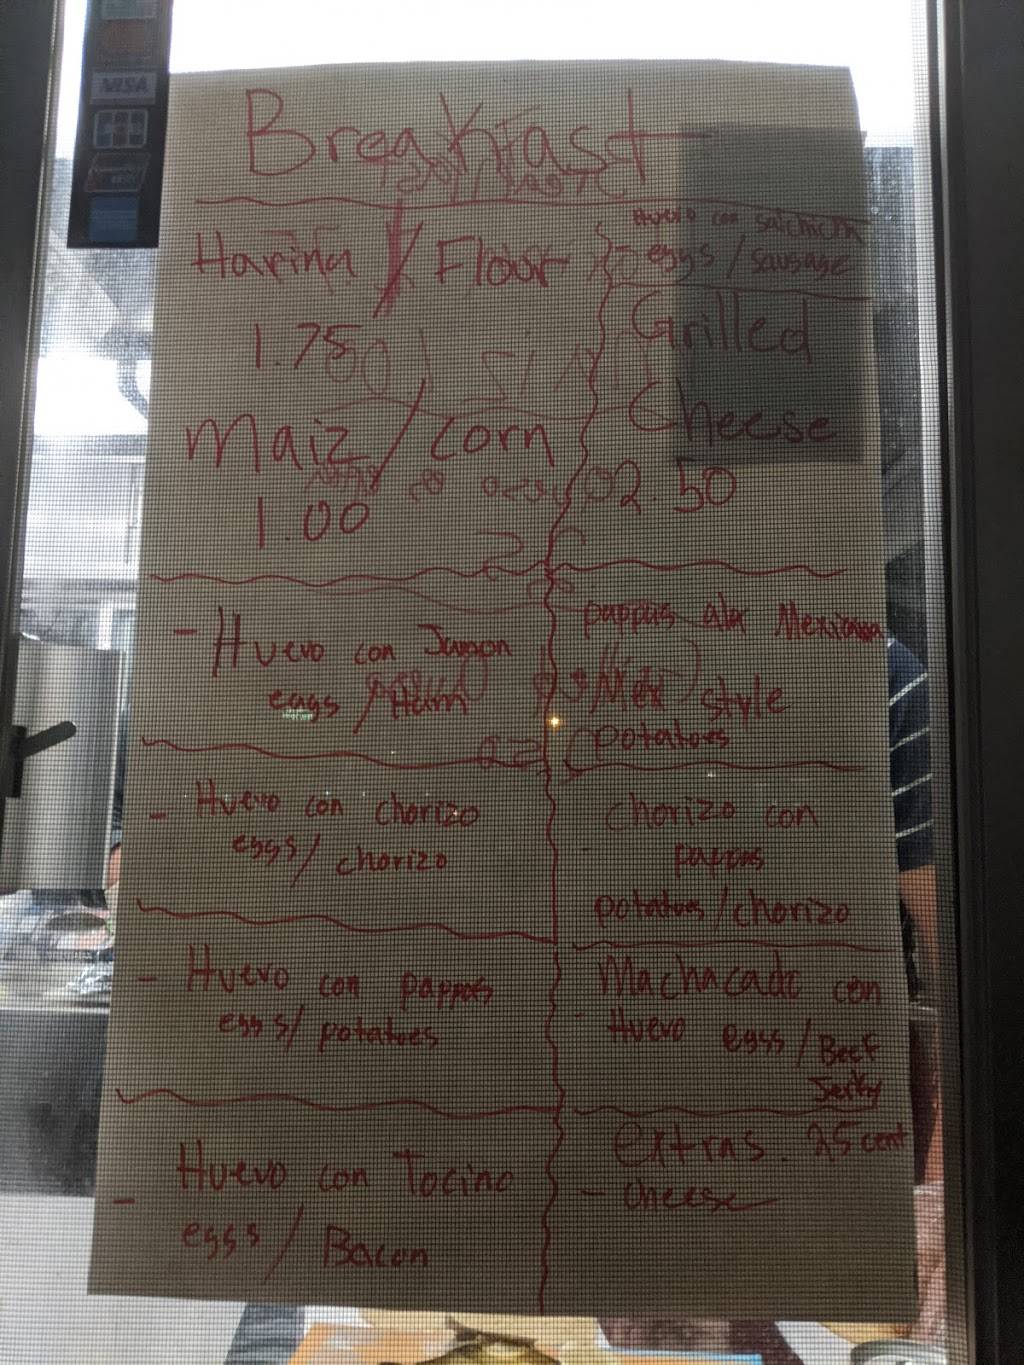 VISA
Breakfast
Harina / Flour
1.75
Maiz / corn
1.00
- Huevo con Jamon
eggs / Ham
- Huevo con chorizo
eggs / chorizo
- Huevo con pappas
eggs / potatoes
- Huevo con Tocino
eggs / Bacon
Huevo con salchicha
eggs / sausage
Grilled
Cheese
2.50
pappas ala Mexicana
Mex style
potatoes
chorizo con
pappas
potatoes / chorizo
Machacado con
Huevo eggs / Beef
Jerky
extras. 25 cent
- cheese